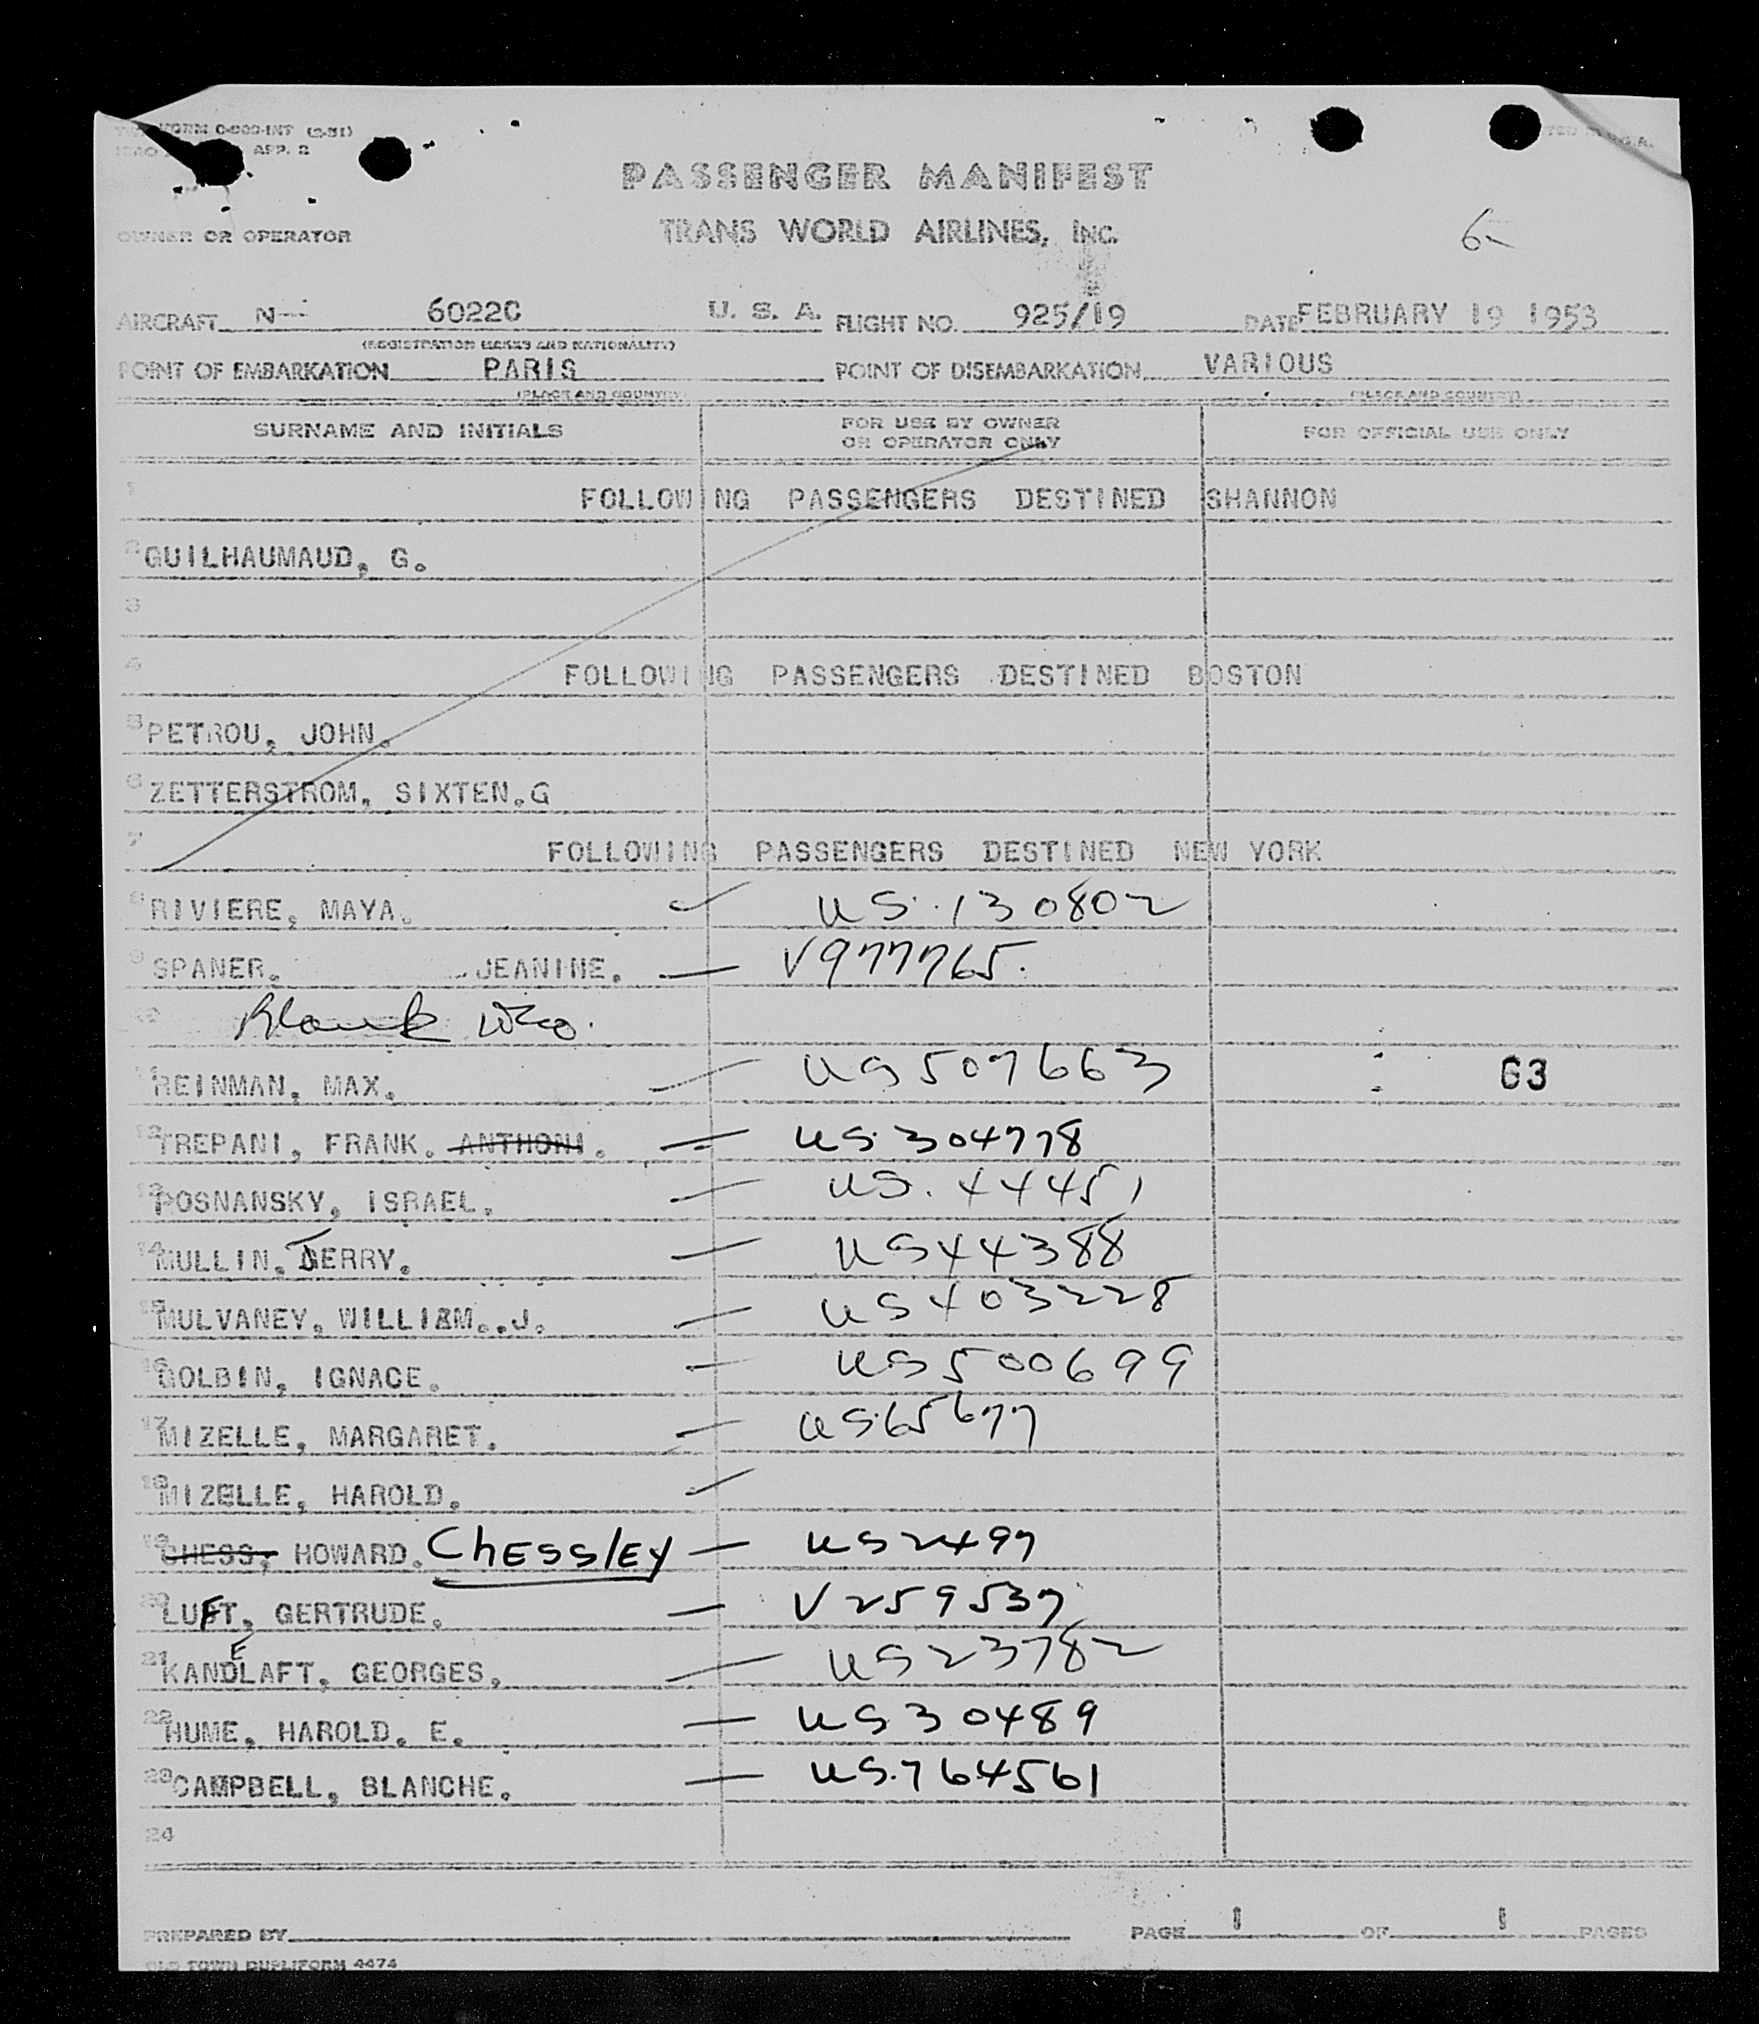 FORM C-900-INT (2-51)
APP. 2
PASSENGER MANIFEST
OWNER OR OPERATOR TRANS WORLD AIRLINES, INC. 6-
AIRCRAFT N-- 6022C U. S. A. FLIGHT NO. 925/19 DATE FEBRUARY 19 1953
(REGISTRATION MARKS AND NATIONALITY)
POINT OF EMBARKATION PARIS POINT OF DISEMBARKATION VARIOUS
(PLACE AND COUNTRY) (PLACE AND COUNTRY)
SURNAME AND INITIALS FOR USE BY OWNER OR OPERATOR ONLY FOR OFFICIAL USE ONLY
1 FOLLOWING PASSENGERS DESTINED SHANNON
2 GUILHAUMAUD, G.
3
4 FOLLOWING PASSENGERS DESTINED BOSTON
5 PETROU, JOHN.
6 ZETTERSTROM, SIXTEN.G
7 FOLLOWING PASSENGERS DESTINED NEW YORK
8 RIVIERE, MAYA. US. 130802
9 SPANER. JEANINE. V977765.
10 Blank
11 REINMAN, MAX. US 507663 G3
12 TREPANI, FRANK. ANTHONI. US.304778
13 POSNANSKY, ISRAEL. US. 44451
14 MULLIN. JERRY. US44388
15 MULVANEY, WILLIAM..J. US403228
16 GOLBIN, IGNACE. US500699
17 MIZELLE, MARGARET. US65677
18 MIZELLE, HAROLD.
19 CHESS, HOWARD. ChESSlEy US2497
20 LUFT, GERTRUDE. V259537
21 KANDELAFT, GEORGES. US23782
22 HUME, HAROLD. E. US30489
23 CAMPBELL, BLANCHE. US.764561
24
PREPARED BY PAGE 1 OF 1 PAGES
OLD TOWN DUPLIFORM 4474